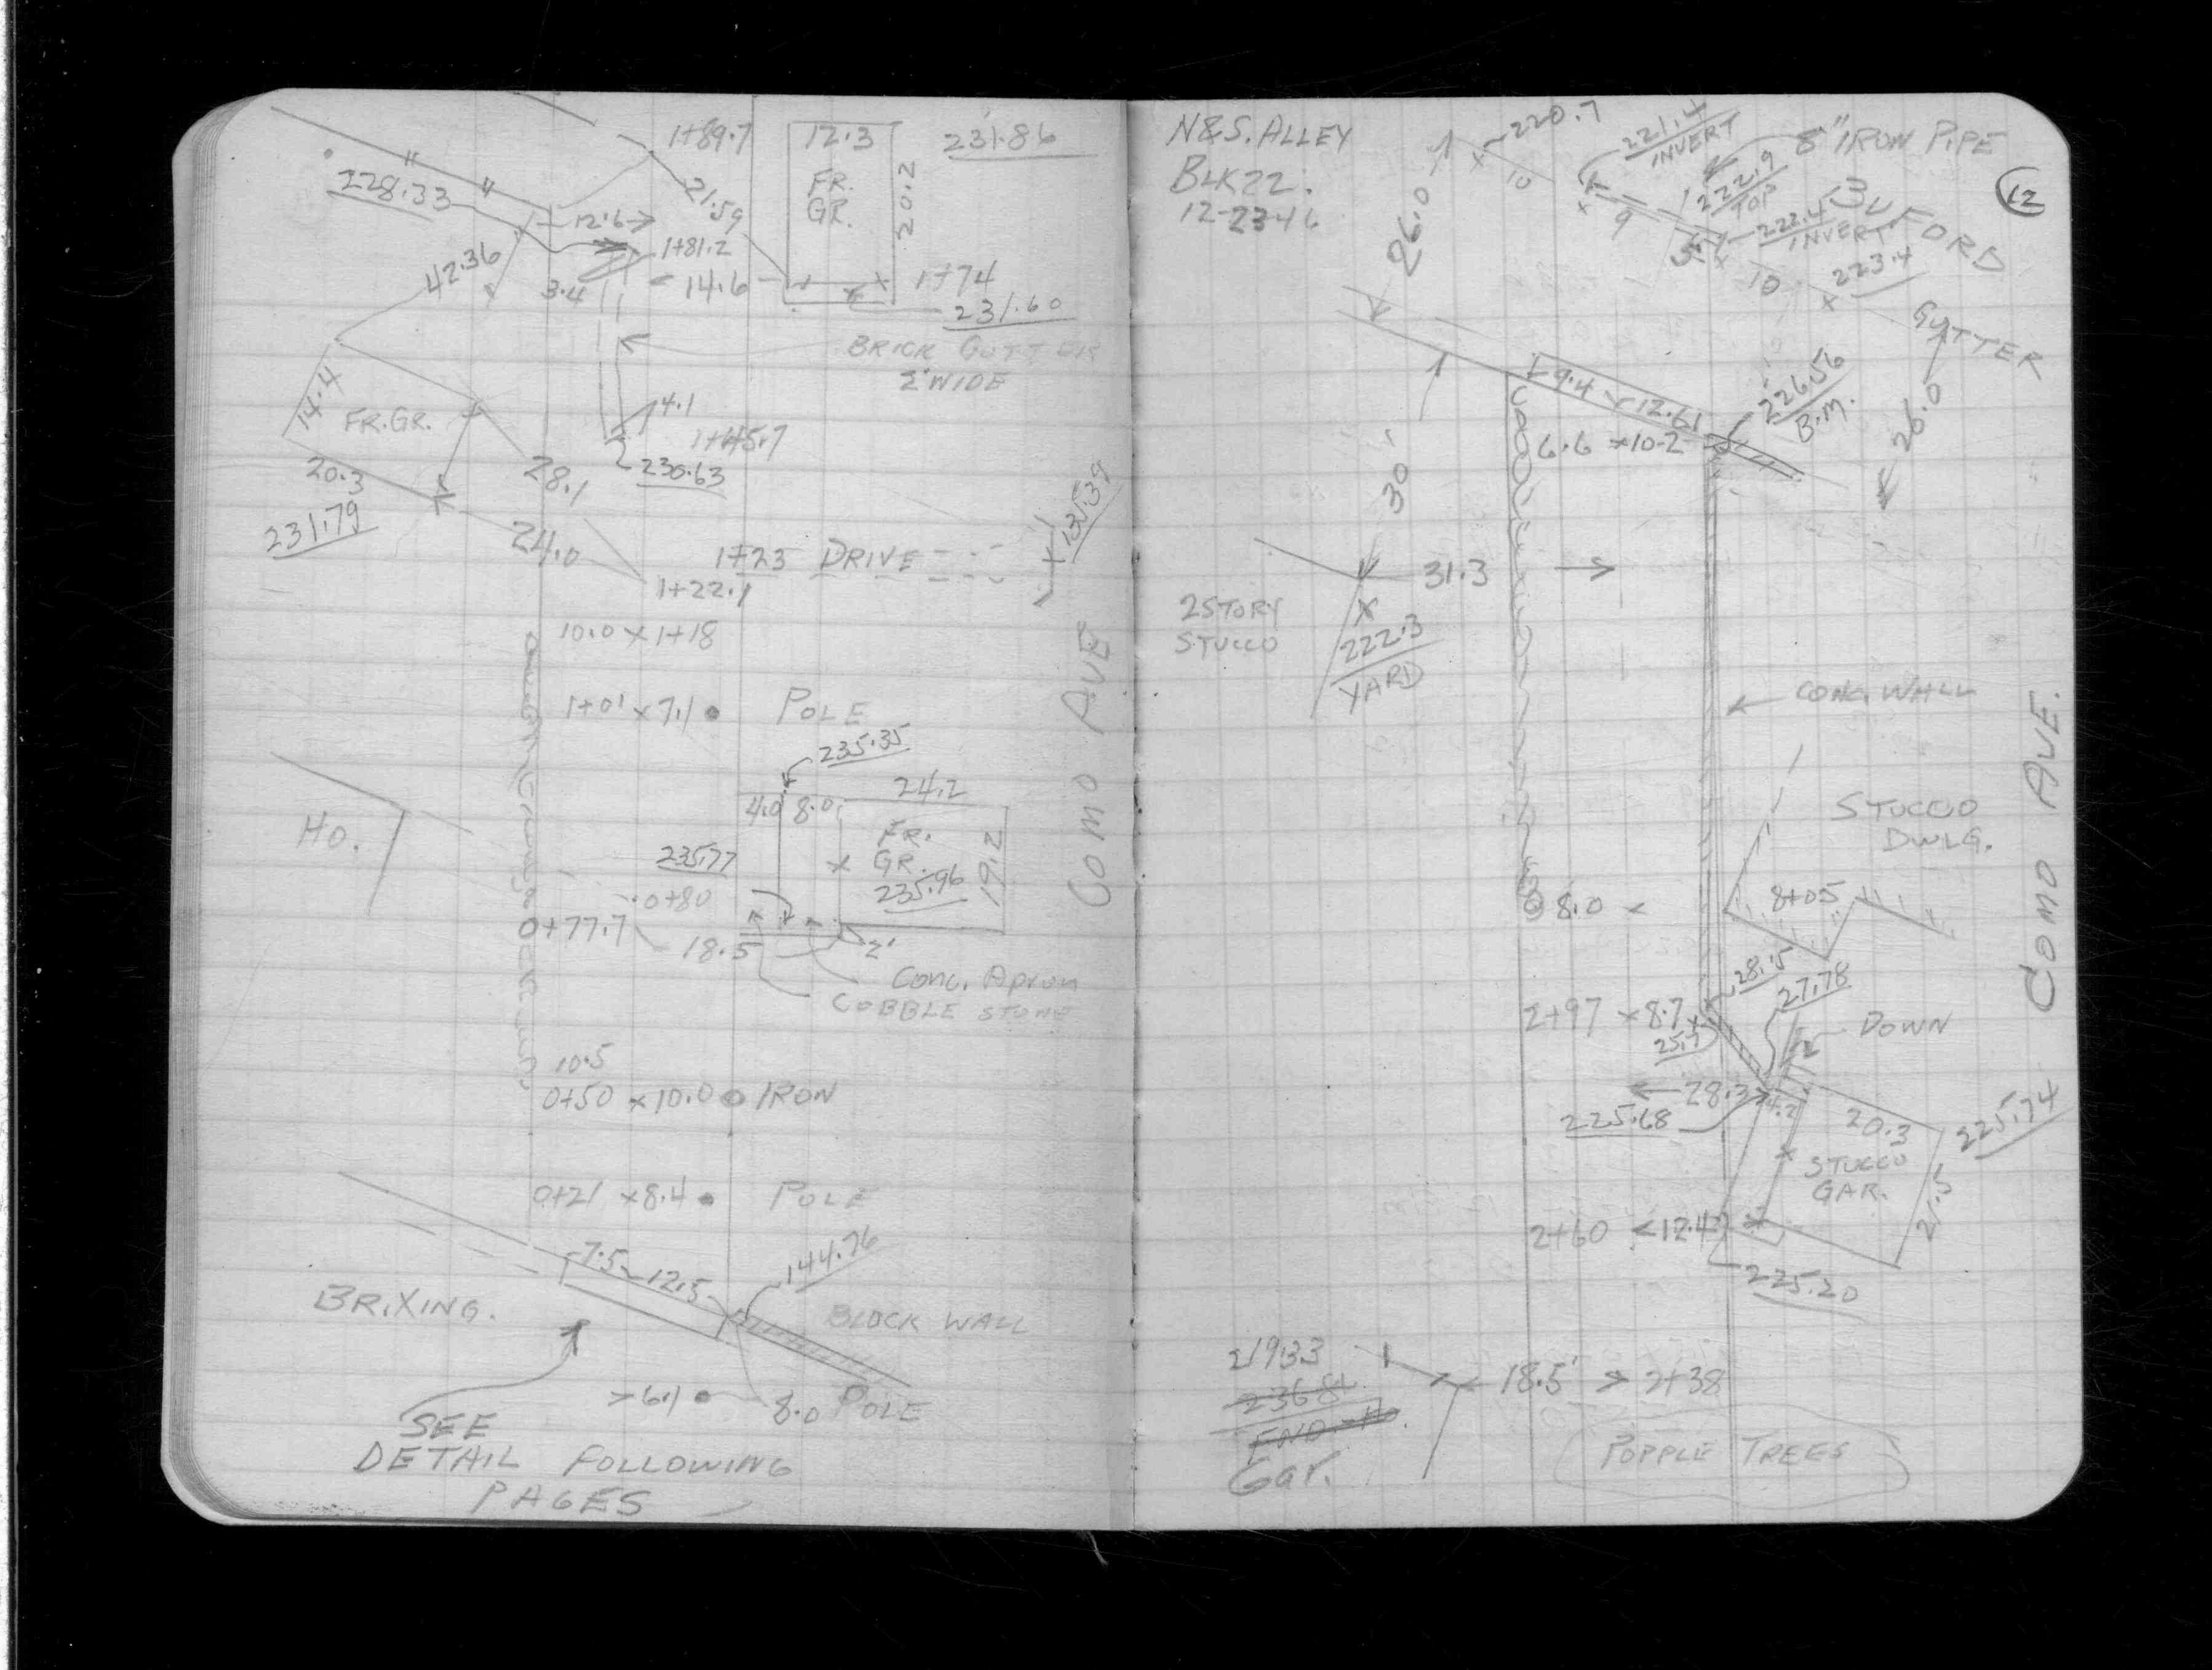 1+89.7
12.3
231.86
228.33
21.59
FR.
GR.
20.2
12.6
1+81.2
42.36
3.4
14.6
1+74
231.60
BRICK GUTTER
2' WIDE
14.4
FR.GR.
4.1
1+45.7
230.63
20.3
28.1
231.79
24.0
1+23 DRIVE
135.39
1+22.1
10.0 x 1+18
COMO AVE
1+01 x 7.1 POLE
235.35
24.2
4.0 8.0
HO.
FR.
GR.
235.96
19.2
235.77
0+80
0+77.7
18.5
2'
CONC. Apron
COBBLE STONE
10.5
0+50 x 10.0 IRON
0+21 x 8.4 POLE
144.76
7.5 12.5
BRIXING.
BLOCK WALL
6.1
8.0 POLE
SEE
DETAIL FOLLOWING
PAGES
N&S. ALLEY
BLK 22.
12-23-46
220.7
221.4
INVERT
8" IRON PIPE
12
10
222.9
TOP
26.0
9
222.4
INVERT
BUFORD
5
10
223.4
GUTTER
9.4 12.61
226.56
B.M.
26.0
6.6 x 10.2
30
31.3
2 STORY
STUCCO
222.3
YARD
CONC. WALL
COMO AVE.
STUCCO
DWLG.
8+05
8.0 x
28.15
27.78
2+97 x 8.7
DOWN
28.3
4.2
225.68
20.3
225.74
STUCCO
GAR.
21.5
2+60 12.4
225.20
21933
18.5' > 2+38
Gar.
POPPLE TREES